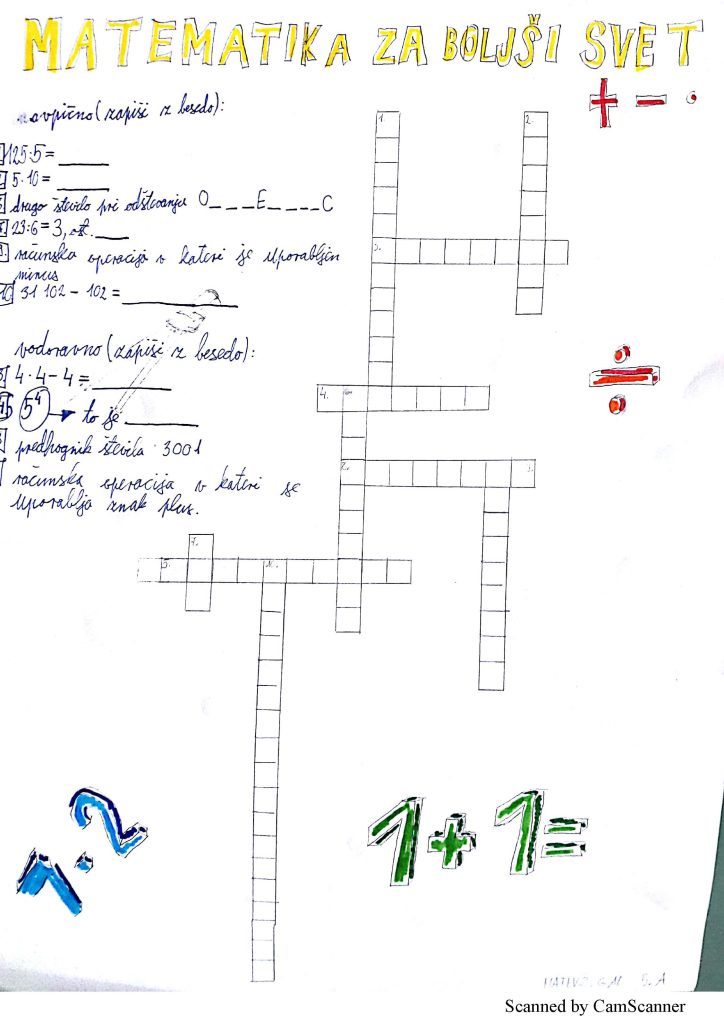 MATEMATIKA ZA BOLJŠI SVET
+ - ·
navpično (zapiši z besedo):
125:5= ____
5·10= ____
drugo število pri odštevanju O___E____C
23:6=3, ost. ___
računska operacija v kateri je uporabljen
minus
10 31 102 - 102 = ____
÷
vodoravno (zapiši z besedo):
4·4-4= ____
5⁴ → to je ____
predhognik števila 3001
računska operacija v kateri se
uporablja znak plus.
1.
2.
3.
4.
6.
2.
3.
7.
5.
1·2
1+1=
5. A
Scanned by CamScanner